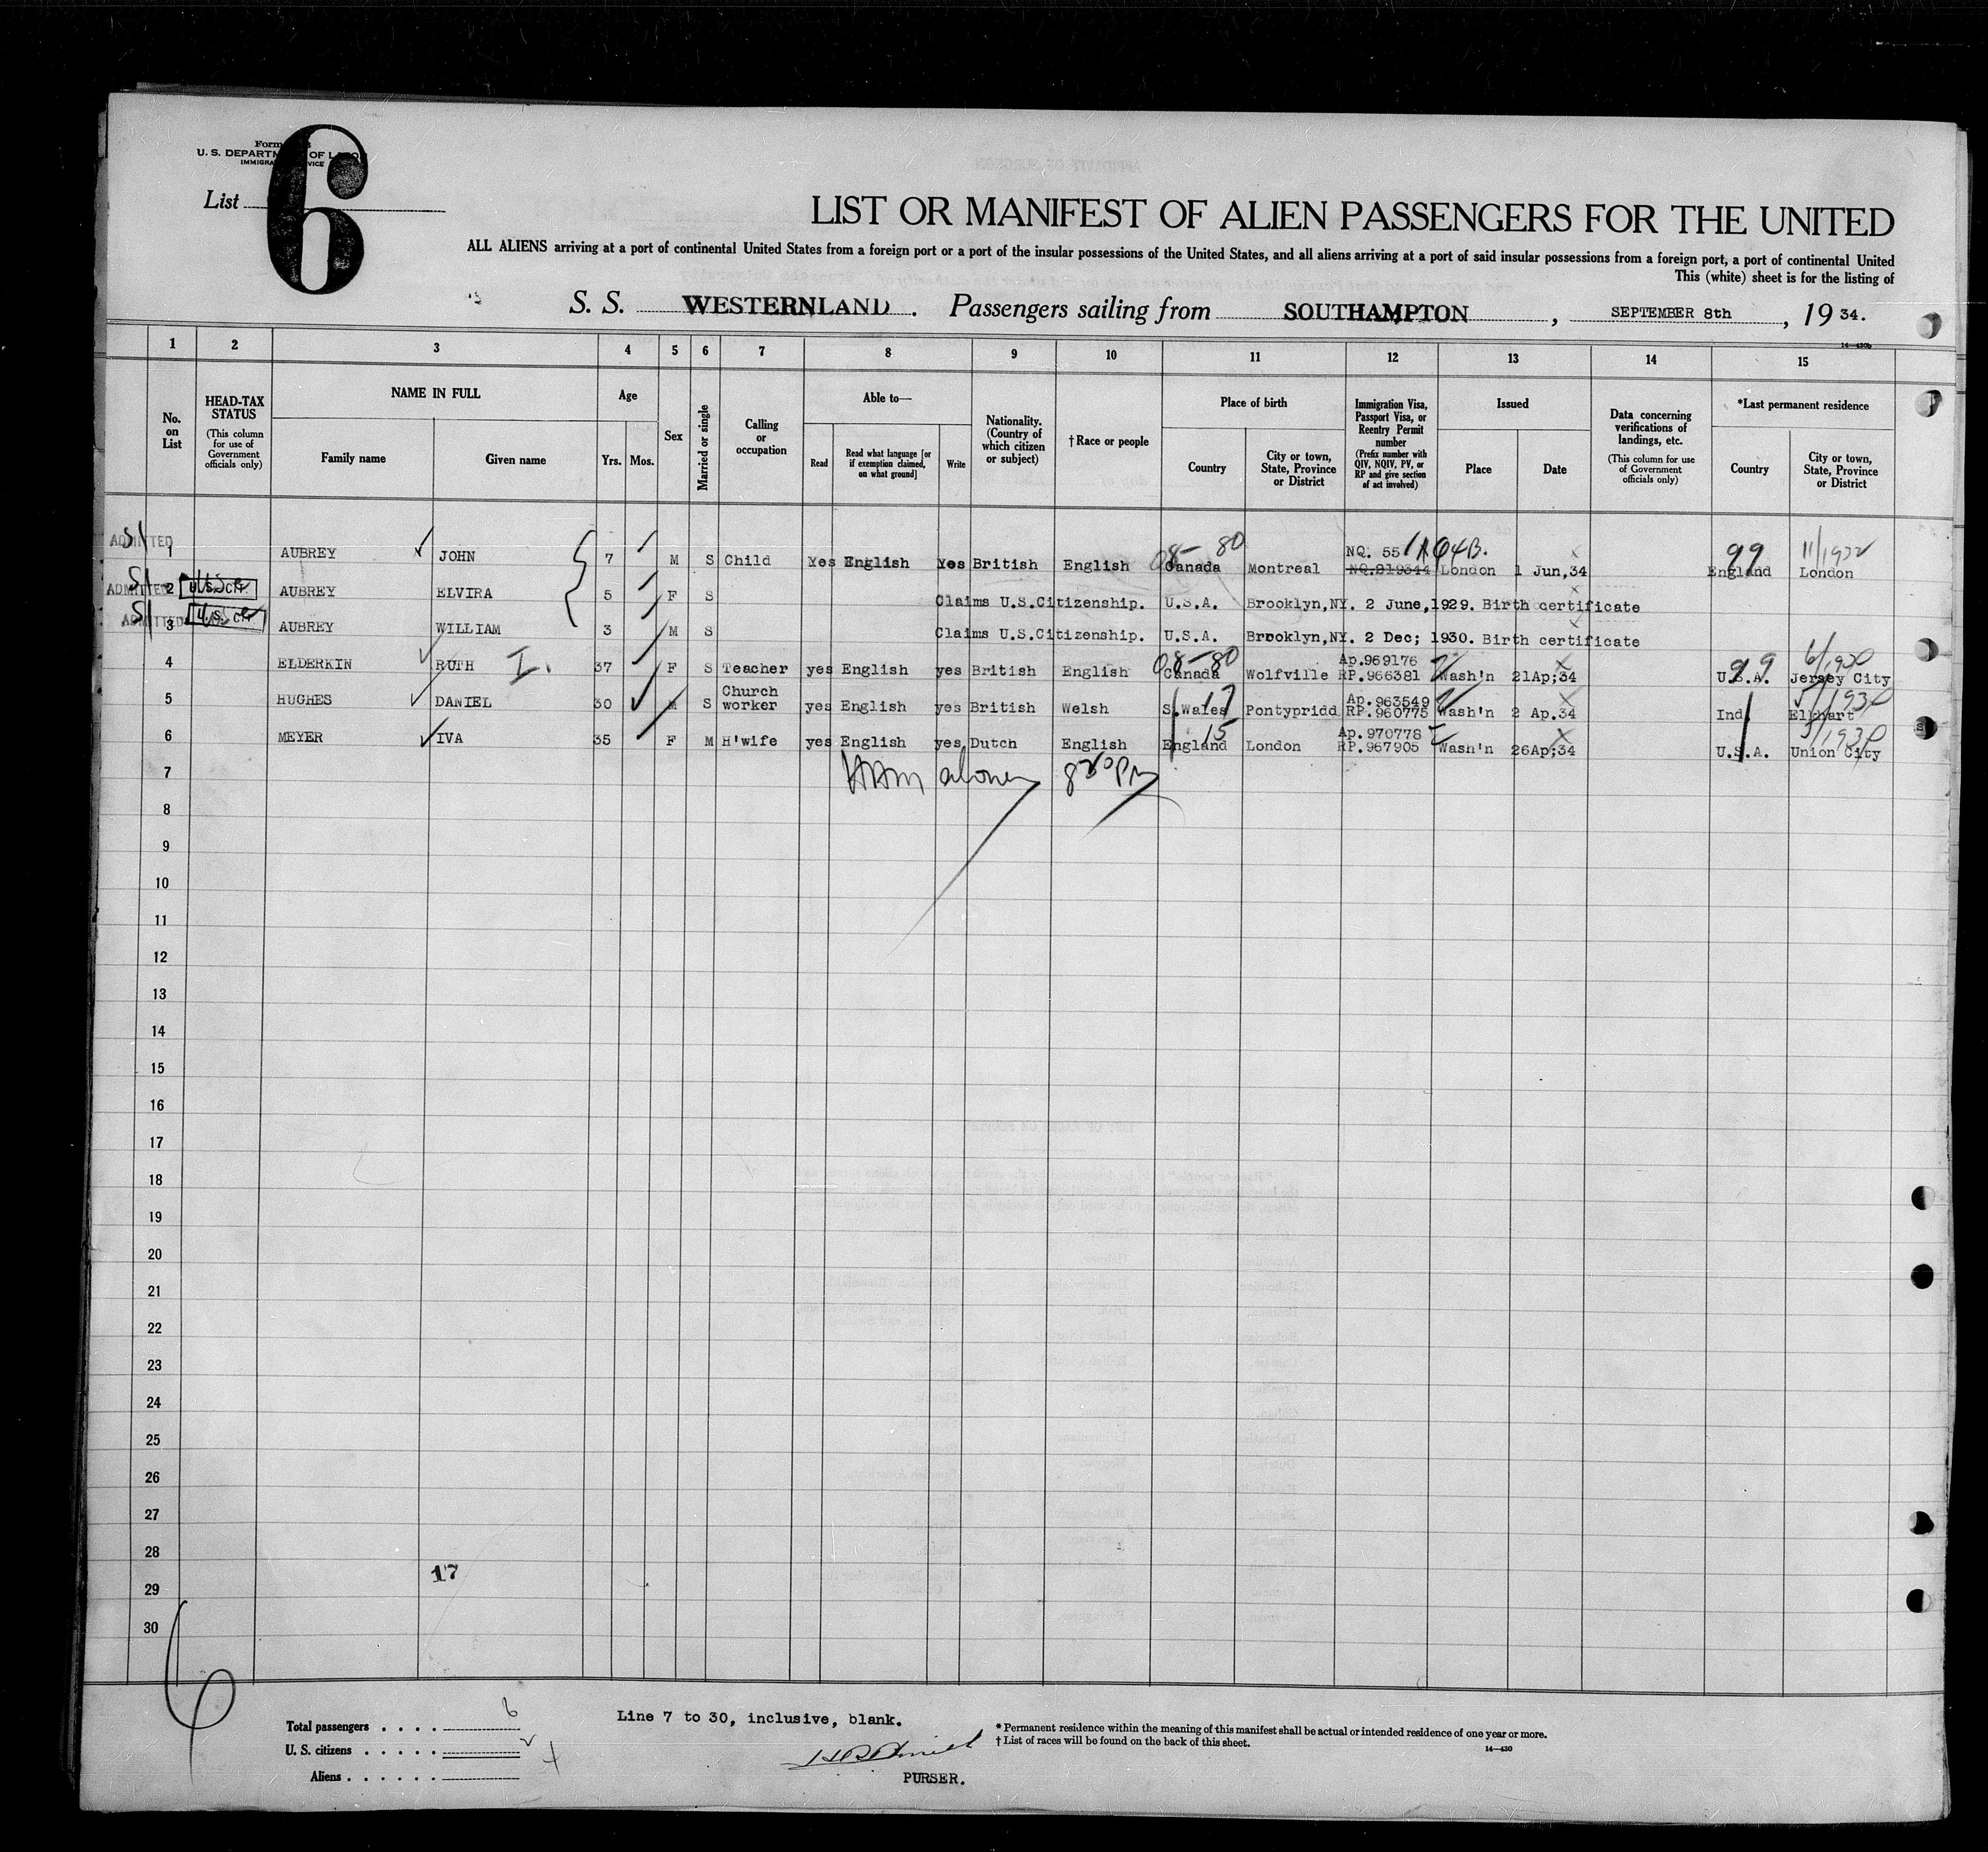 Form
U. S. DEPARTM OF LABOR
IMMIGRA VICE
List 6
LIST OR MANIFEST OF ALIEN PASSENGERS FOR THE UNITED
ALL ALIENS arriving at a port of continental United States from a foreign port or a port of the insular possessions of the United States, and all aliens arriving at a port of said insular possessions from a foreign port, a port of continental United
This (white) sheet is for the listing of
S. S. WESTERNLAND. Passengers sailing from SOUTHAMPTON, SEPTEMBER 8th, 19 34.
14—430b
1 2 3 4 5 6 7 8 9 10 11 12 13 14 15
No. on List
HEAD-TAX STATUS (This column for use of Government officials only)
NAME IN FULL Family name Given name
Age Yrs. Mos.
Sex
Married or single
Calling or occupation
Able to— Read Read what language [or if exemption claimed, on what ground] Write
Nationality. (Country of which citizen or subject)
†Race or people
Place of birth Country City or town, State, Province or District
Immigration Visa, Passport Visa, or Reentry Permit number (Prefix number with QIV, NQIV, PV, or RP and give section of act involved)
Issued Place Date
Data concerning verifications of landings, etc. (This column for use of Government officials only)
*Last permanent residence Country City or town, State, Province or District
NQ. 55 4B. 99 11/1932
ADMITTED SI 1 AUBREY JOHN 7 M S Child Yes English Yes British English 08-80 Canada Montreal NQ.219344 London 1 Jun,34 England London
ADMITTED SI 2 U.S. CIT. AUBREY ELVIRA 5 F S Claims U.S.Citizenship. U.S.A. Brooklyn,NY. 2 June,1929. Birth certificate
ADMITTED SI 3 U.S. CIT. AUBREY WILLIAM 3 M S Claims U.S.Citizenship. U.S.A. Brooklyn,NY. 2 Dec; 1930. Birth certificate
08-80 Ap.969176 99 6/1930
4 ELDERKIN RUTH I. 37 F S Teacher yes English yes British English Canada Wolfville RP.966381 Wash'n 21Ap;34 U.S.A. Jersey City
17 Ap.963549 5/1930
5 HUGHES DANIEL 30 M S Church worker yes English yes British Welsh S.Wales Pontypridd RP.960775 Wash'n 2 Ap.34 Ind. Elkhart
15 Ap.970778 5/1930
6 MEYER IVA 35 F M H'wife yes English yes, Dutch English England London RP.967905 Wash'n 26Ap;34 U.S.A. Union City
7
8
9
10
11
12
13
14
15
16
17
18
19
20
21
22
23
24
25
26
27
28
17
29
30
6
Total passengers . . . . 6
U. S. citizens . . . . . 2
Aliens . . . . . . 4
Line 7 to 30, inclusive, blank.
PURSER.
* Permanent residence within the meaning of this manifest shall be actual or intended residence of one year or more.
† List of races will be found on the back of this sheet.
14—430